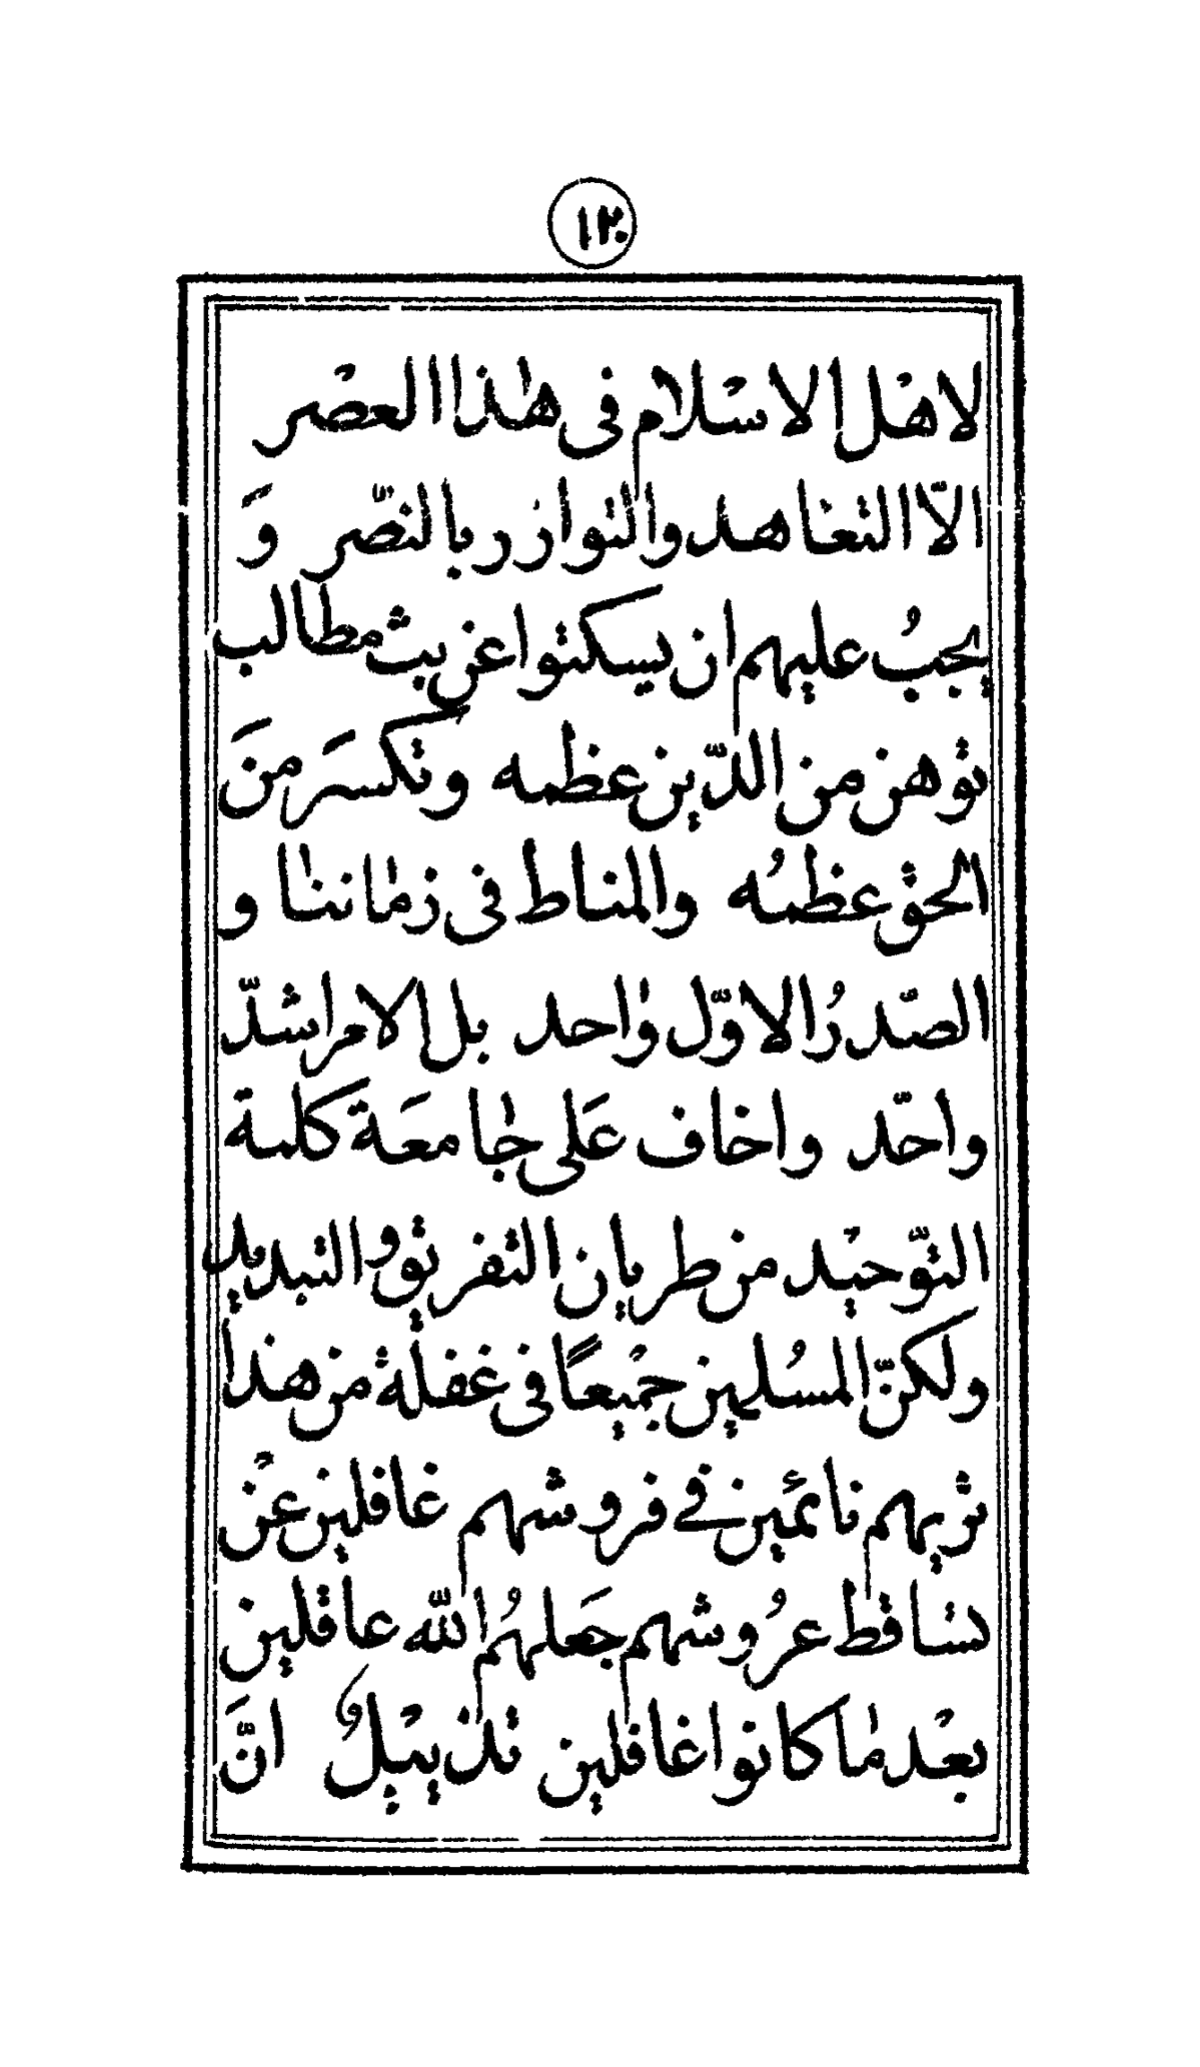 ١٢٠
لاهْل الاسْلام فى هٰذا العصْر
الّا التعٰاهد والتوازر بالنصّر وَ
يجبُ عليهم ان يسكتوا عن بثّ مطالب
توهن من الدّين عظمه وتكسرَ منَ
الحق عظمُه والمناط فى زمٰاننٰا و
الصّدرُ الاوّل وٰاحد بل الامر اشدّ
واحّد واخاف عَلى جٰامعَة كلمة
التوّحيْد من طريان التفريق والتبديل
ولكنّ المسُلمين جميْعاً فى غفلة من هذا
ثريهم نائمين فے فروشهم غافلين عنْ
تساقط عرُوشهم جَعلهُم الله عاقلين
بعْد مٰا كانوا غافلين تذييْل انَّ